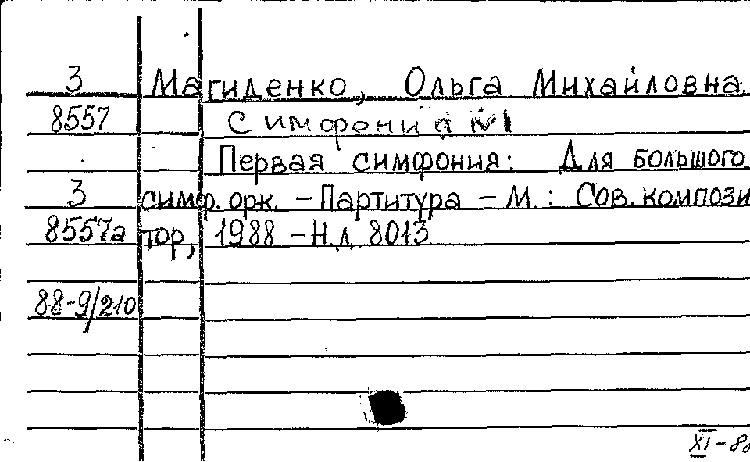 3 Магиденко, Ольга Михайловна
8557 Симфония №1
Первая симфония: Для большого
3 симф. орк. – Партитура – М.: Сов. компози
8557а тор, 1988 – Н.д. 8013
88-9/210
XI-88